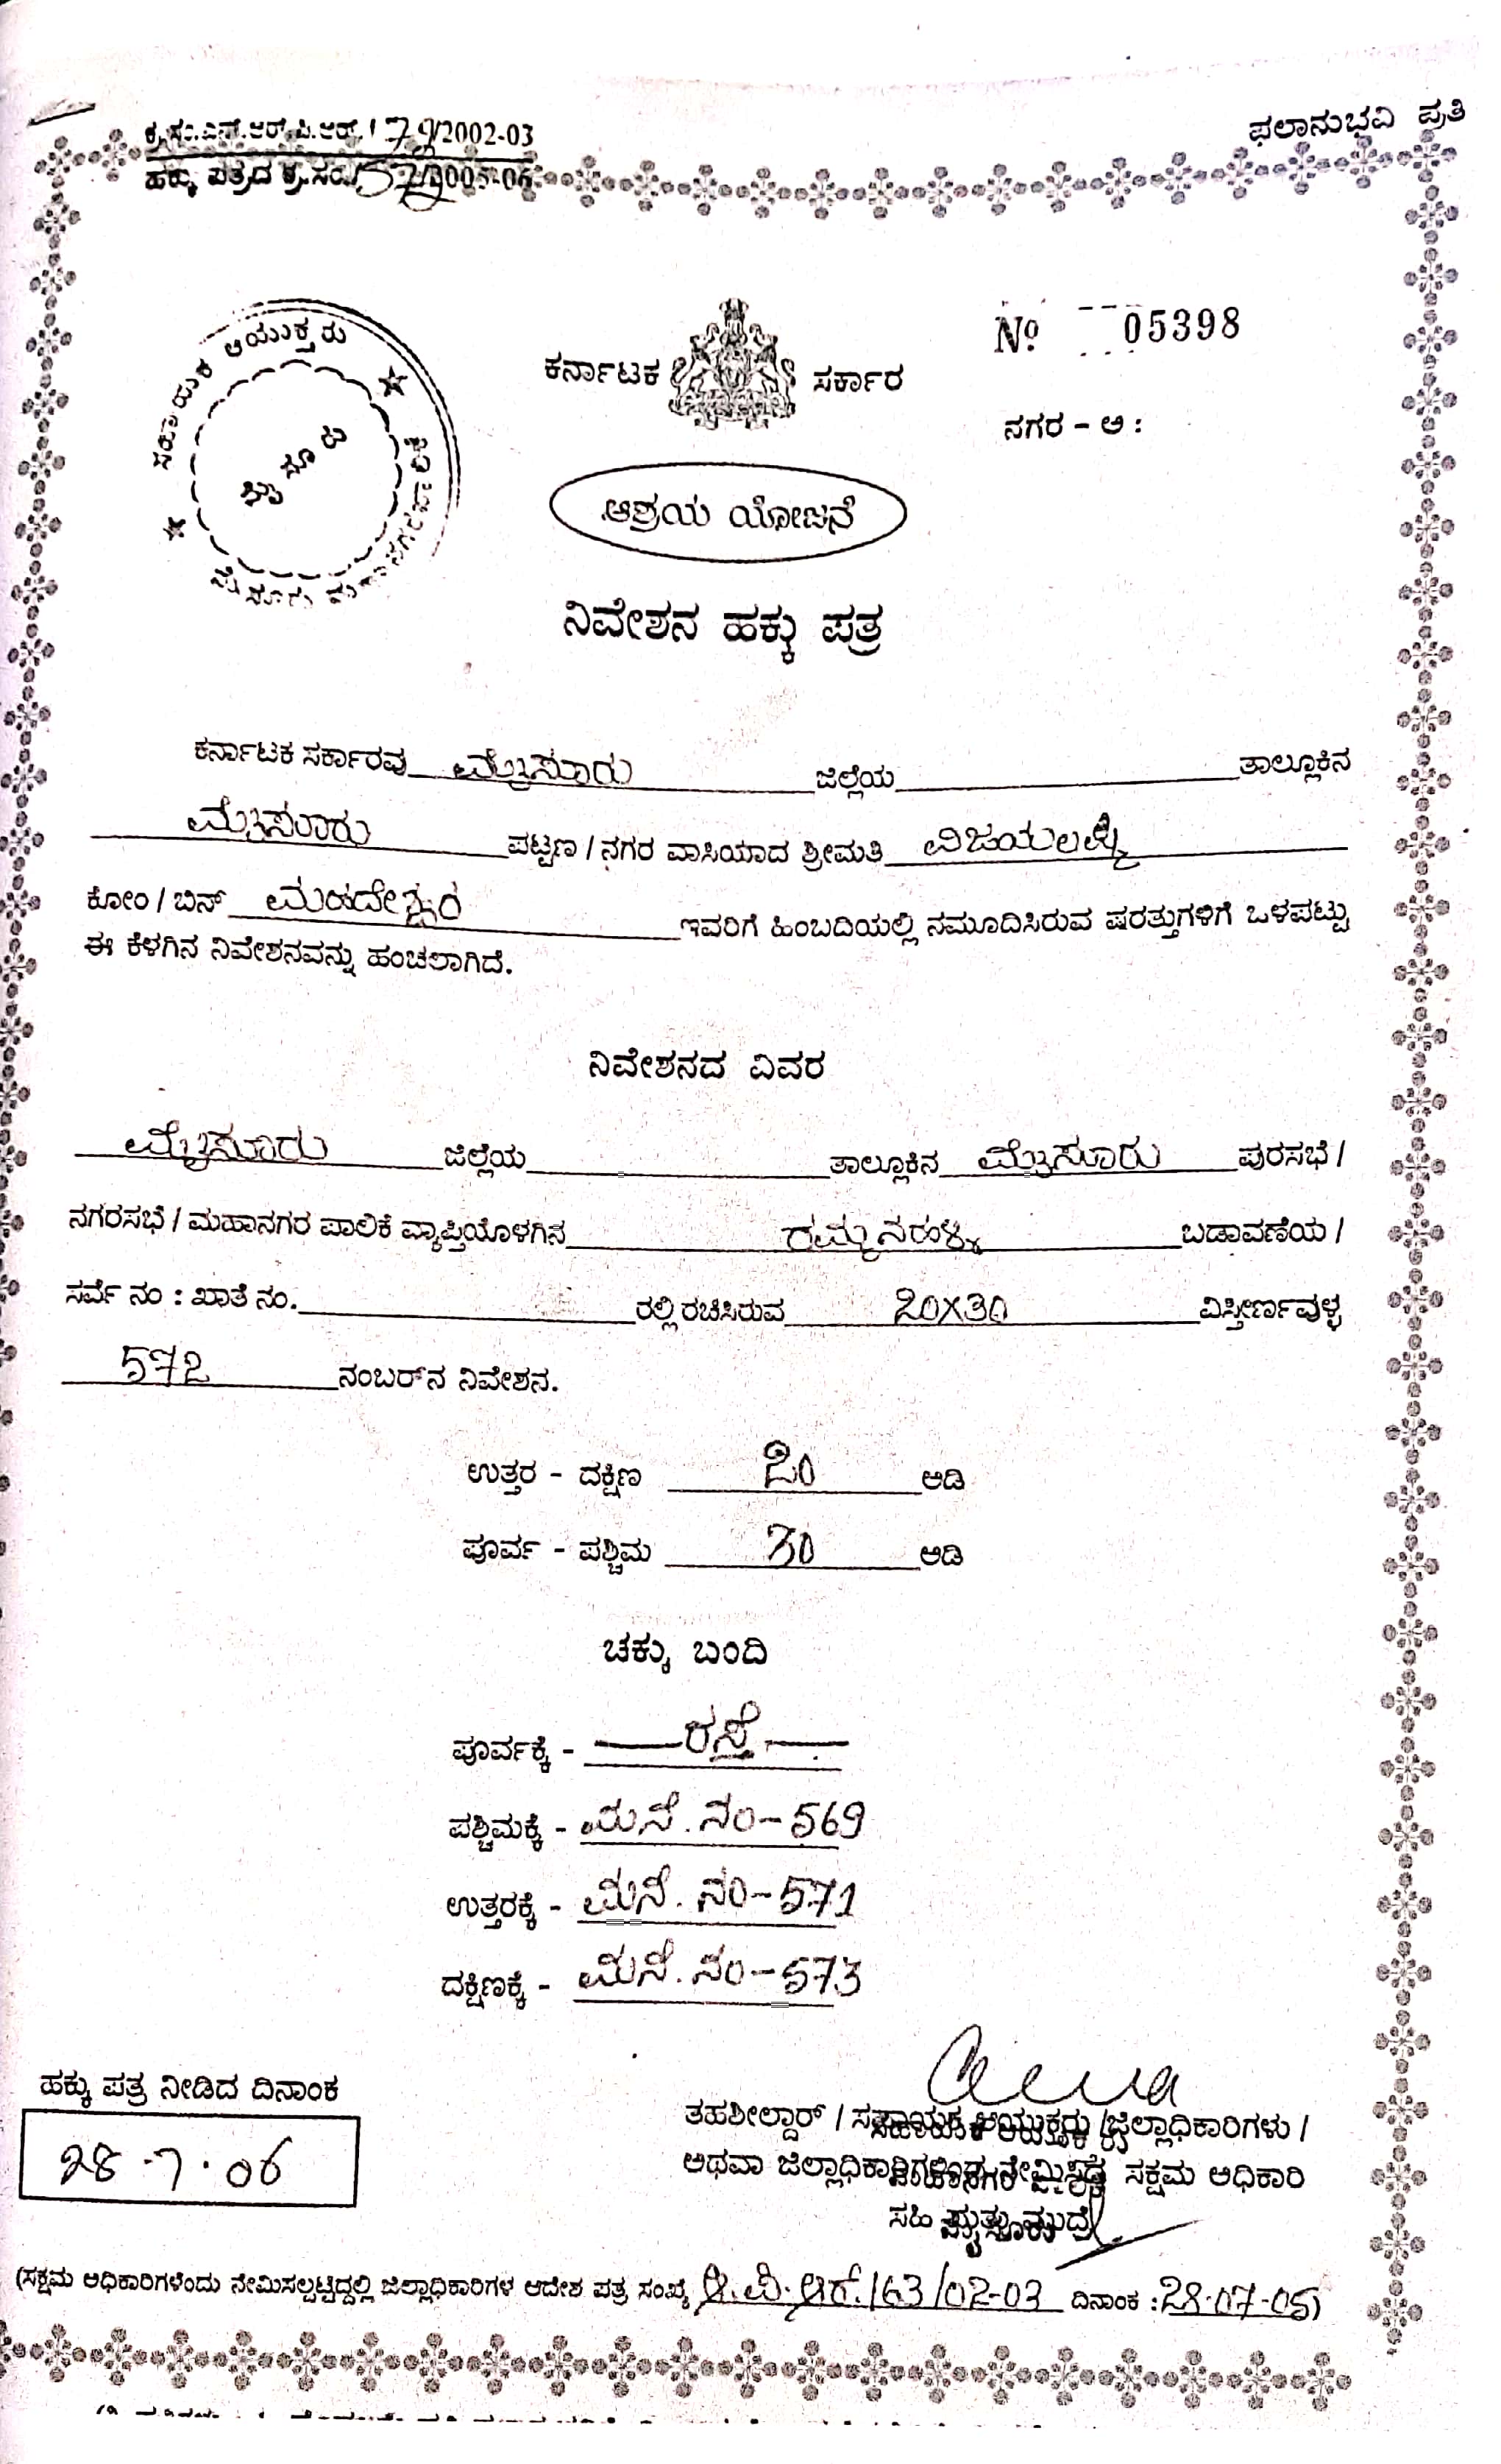 ಫಲಾನುಭವಿ ಪ್ರತಿ
ಕ್ರ.ಸಂ.ಎನ್.ಆರ್.ಪಿ.ಆರ್. / 79/2002-03
ಹಕ್ಕು ಪತ್ರದ ಕ್ರ.ಸಂ. 572/2005-06
ಸಹಾಯಕ ಆಯುಕ್ತರು
ಮೈಸೂರು
ಮೈಸೂರು ಮಹಾನಗರಪಾಲಿಕೆ
No. 05398
ಕರ್ನಾಟಕ ಸರ್ಕಾರ
ನಗರ - ಅ :
ಆಶ್ರಯ ಯೋಜನೆ
ನಿವೇಶನ ಹಕ್ಕು ಪತ್ರ
ಕರ್ನಾಟಕ ಸರ್ಕಾರವು ಮೈಸೂರು ಜಿಲ್ಲೆಯ ತಾಲ್ಲೂಕಿನ
ಮೈಸೂರು ಪಟ್ಟಣ / ನಗರ ವಾಸಿಯಾದ ಶ್ರೀಮತಿ ವಿಜಯಲಕ್ಷ್ಮಿ
ಕೋಂ / ಬಿನ್ ಮಹದೇಶ್ವರ ಇವರಿಗೆ ಹಿಂಬದಿಯಲ್ಲಿ ನಮೂದಿಸಿರುವ ಷರತ್ತುಗಳಿಗೆ ಒಳಪಟ್ಟು
ಈ ಕೆಳಗಿನ ನಿವೇಶನವನ್ನು ಹಂಚಲಾಗಿದೆ.
ನಿವೇಶನದ ವಿವರ
ಮೈಸೂರು ಜಿಲ್ಲೆಯ ತಾಲ್ಲೂಕಿನ ಮೈಸೂರು ಪುರಸಭೆ /
ನಗರಸಭೆ / ಮಹಾನಗರ ಪಾಲಿಕೆ ವ್ಯಾಪ್ತಿಯೊಳಗಿನ ರಮ್ಮನಹಳ್ಳಿ ಬಡಾವಣೆಯ /
ಸರ್ವೆ ನಂ : ಖಾತೆ ನಂ. ರಲ್ಲಿ ರಚಿಸಿರುವ 20X30 ವಿಸ್ತೀರ್ಣವುಳ್ಳ
572 ನಂಬರ್‌ನ ನಿವೇಶನ.
ಉತ್ತರ - ದಕ್ಷಿಣ 20 ಅಡಿ
ಪೂರ್ವ - ಪಶ್ಚಿಮ 30 ಅಡಿ
ಚಕ್ಕು ಬಂದಿ
ಪೂರ್ವಕ್ಕೆ - ರಸ್ತೆ
ಪಶ್ಚಿಮಕ್ಕೆ - ಮನೆ. ನಂ-569
ಉತ್ತರಕ್ಕೆ - ಮನೆ. ನಂ-571
ದಕ್ಷಿಣಕ್ಕೆ - ಮನೆ. ನಂ-573
ಹಕ್ಕು ಪತ್ರ ನೀಡಿದ ದಿನಾಂಕ
28.7.06
ತಹಶೀಲ್ದಾರ್ / ಸಹಾಯಕ ಆಯುಕ್ತರು / ಜಿಲ್ಲಾಧಿಕಾರಿಗಳು /
ಸಹಾಯಕ ಆಯುಕ್ತರು
ಅಥವಾ ಜಿಲ್ಲಾಧಿಕಾರಿಗಳಿಂದ ನೇಮಿಸಿದ ಸಕ್ಷಮ ಅಧಿಕಾರಿ
ಮಹಾನಗರ ಪಾಲಿಕೆ
ಸಹಿ ಮತ್ತು ಮುದ್ರೆ
ಮೈಸೂರು
(ಸಕ್ಷಮ ಅಧಿಕಾರಿಗಳೆಂದು ನೇಮಿಸಲ್ಪಟ್ಟಿದ್ದಲ್ಲಿ ಜಿಲ್ಲಾಧಿಕಾರಿಗಳ ಆದೇಶ ಪತ್ರ ಸಂಖ್ಯೆ 163/02-03 ದಿನಾಂಕ : 28.07-05)